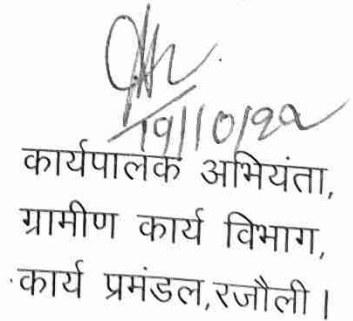 19/10/22
कार्यपालक अभियंता,
ग्रामीण कार्य विभाग,
कार्य प्रमंडल,रजौली।